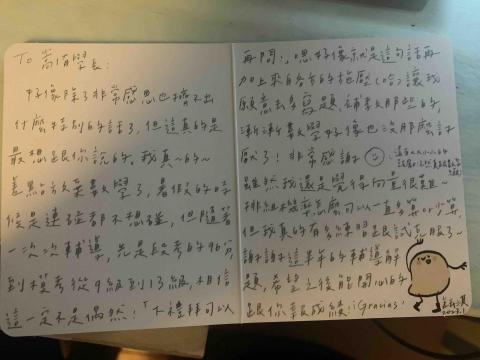 To 嵩情學長:
好像除了非常感恩也擠不出
什麼特別的話了,但這真的是
最想跟你說的。我真~的~
差點放棄數學了,暑假的時
候是連碰都不想碰,但隨著
一次次輔導,先是段考的96分
到模考從9級到13級,相信
這一定不是偶然!「下禮拜可以
再問:」,恩好像就是這句話再
加上來自各方的施壓(哈),讓我
願意去多寫題、補救那些的,
漸漸數學好像也沒那麼討
厭了!非常感謝
雖然我還是覺得向量很難~
排組機率怎麼可以一直多算or少算,
但我真的有多練習跟試克服了~
謝謝這半年的輔導解
題,希望之後能開心的
跟你報成績!¡Gracias!
2023.1